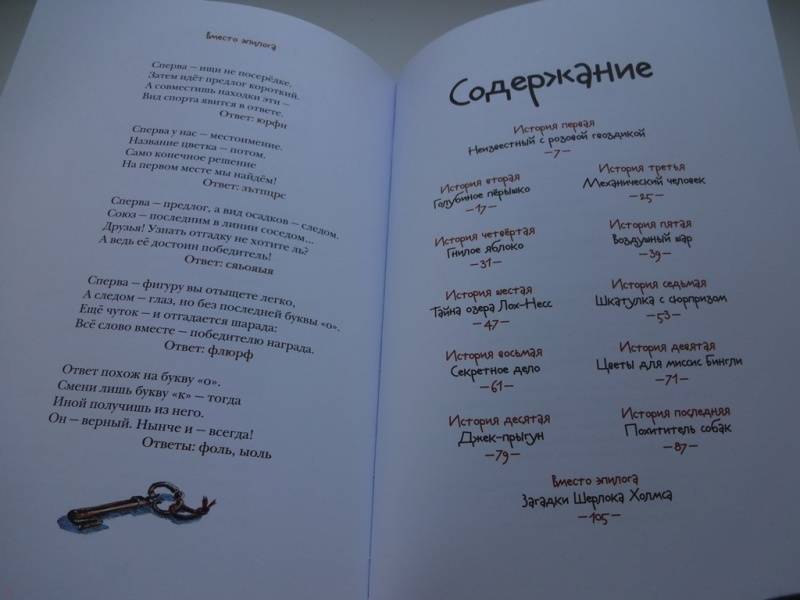 Вместо эпилога
Сперва – ищи не посерёдке.
Затем идёт предлог короткий.
А совместишь находки эти –
Вид спорта явится в ответе.
Ответ: юрфн
Сперва у нас – местоимение.
Название цветка – потом.
Само конечное решение
На первом месте мы найдём!
Ответ: зътпцрс
Сперва – предлог, а вид осадков – следом.
Союз – последним в линии соседом...
Друзья! Узнать отгадку не хотите ль?
А ведь её достоин победитель!
Ответ: сяьояыя
Сперва – фигуру вы отыщете легко,
А следом – глаз, но без последней буквы «о».
Ещё чуток – и отгадается шарада:
Всё слово вместе – победителю награда.
Ответ: флюрф
Ответ похож на букву «о».
Смени лишь букву «к» – тогда
Иной получишь из него.
Он – верный. Нынче и – всегда!
Ответы: фоль, ыоль
Содержание
История первая
Неизвестный с розовой гвоздикой
–7–
История вторая
Голубиное пёрышко
–17–
История третья
Механический человек
–25–
История четвёртая
Гнилое яблоко
–31–
История пятая
Воздушный шар
–39–
История шестая
Тайна озера Лох-Несс
–47–
История седьмая
Шкатулка с сюрпризом
–53–
История восьмая
Секретное дело
–61–
История девятая
Цветы для миссис Бингли
–71–
История десятая
Джек-прыгун
–79–
История последняя
Похититель собак
–87–
Вместо эпилога
Загадки Шерлока Холмса
–105–